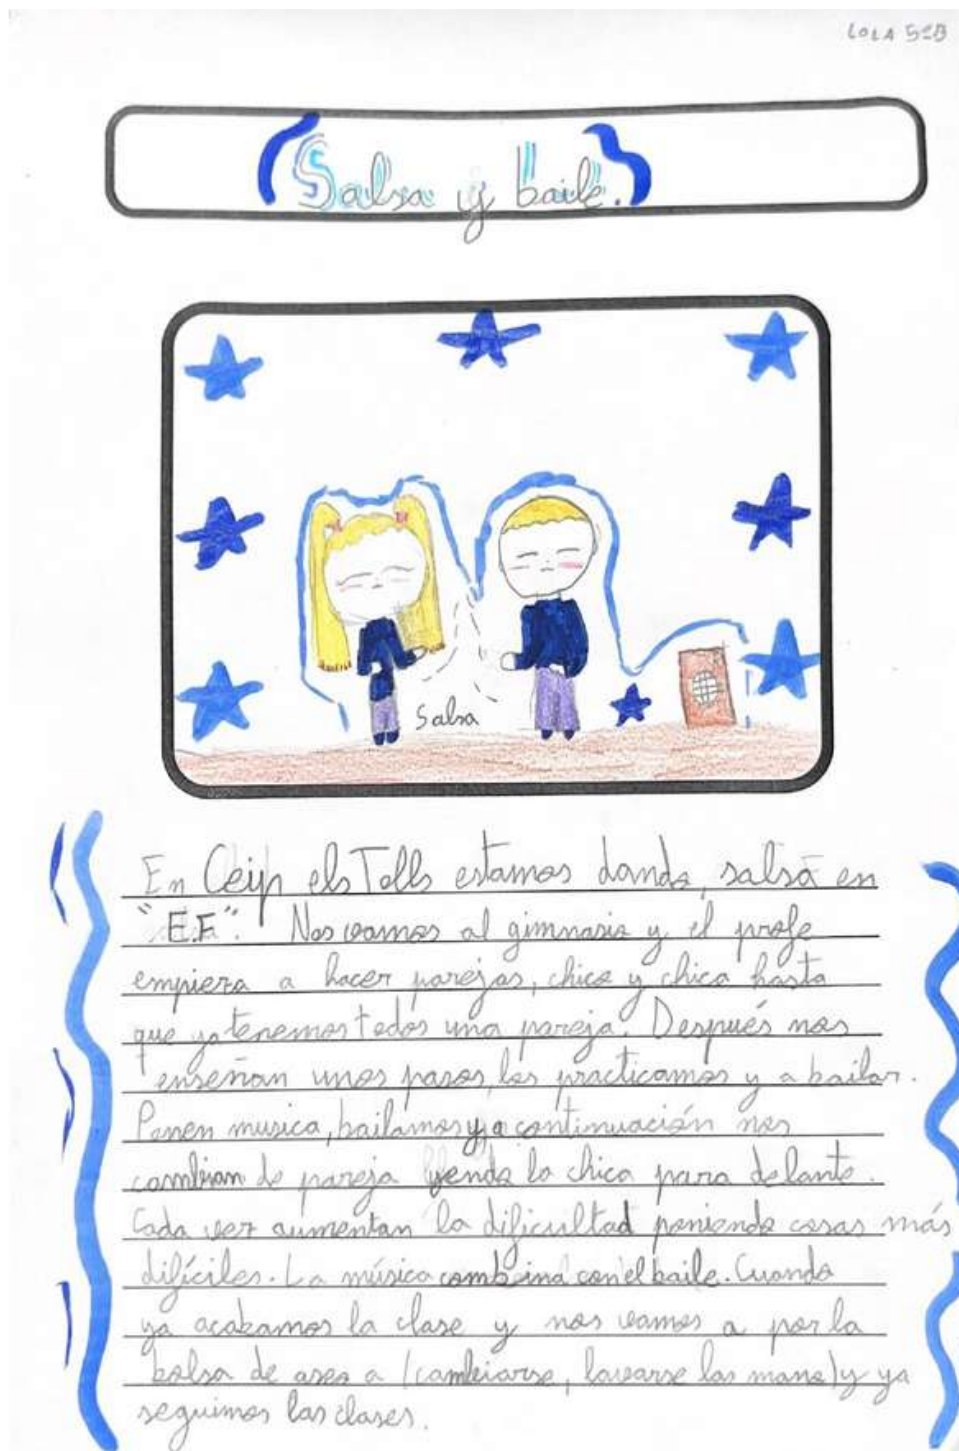 LOLA 5ºB
Salsa y baile.
Salsa
En Ceip els Tolls estamos dando, salsa en
"E.F". Nos vamos al gimnasio y el profe
empieza a hacer parejas, chico y chica hasta
que ya tenemos todos una pareja. Después nos
enseñan unos pasos, los practicamos y a bailar.
Ponen musica, bailamos y a continuación nos
cambian de pareja yendo la chica para delante.
Cada vez aumentan la dificultad poniendo cosas más
difíciles. La música combina con el baile. Cuando
ya acabamos la clase y nos vamos a por la
bolsa de aseo a (cambiarse, lavarse las mano) y ya
seguimos las clases.